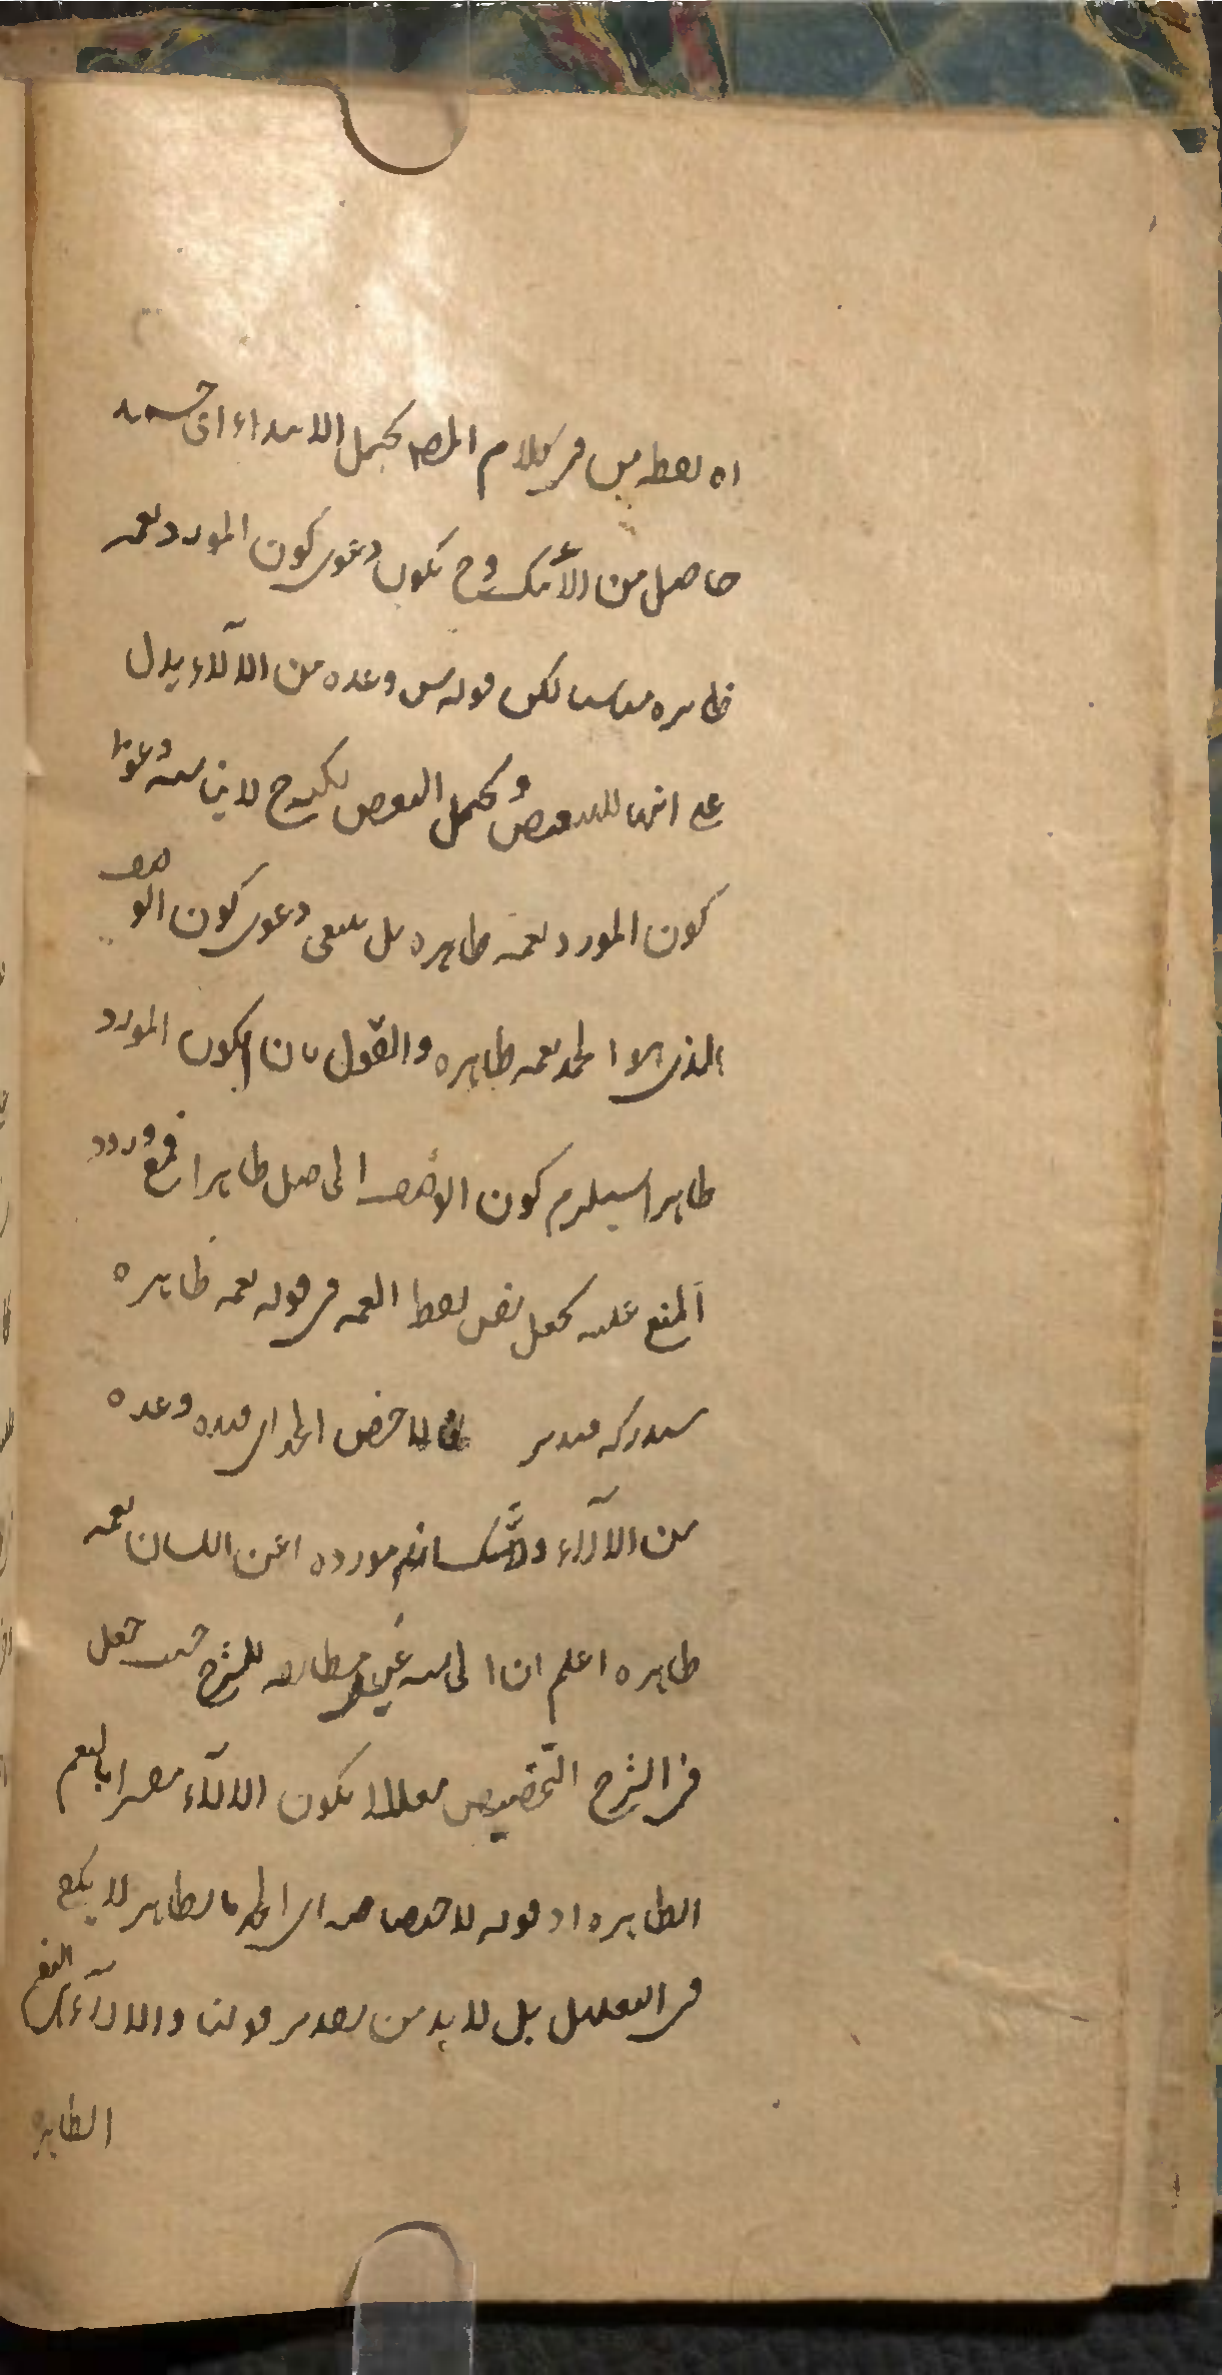 اه لفظه من في كلام المصـ يحتمل الابتداء اى
حاصل من الآ يكون دعوى كون المورد نعمة
ظاهرة مناسبا لكن قوله س وعده من الآلاء يدل
على انها للتبعيض ويحتمل البعض لا يناسبه دعوى
كون المورد نعمة ظاهرة بل ينبغي دعوى كون الوصف
الذي هو الحمد نعمة ظاهرة والقول بان كون المورد
ظاهرا يستلزم كون الوصف الحاصل ظاهرا فمع ورود
المنع عليه يجعل لفظ النعمة في قوله نعمة ظاهرة
مستدركة فتدبر الحمد اى قيده وعده
من الآلاء ولا شك ان مورده اعنى اللسان نعمة
ظاهرة اعلم ان الحاشية غير مطابقة للشرح حيث جعل
في الشرح التخصيص معللا بكون الآلاء مفسرا بالنعم
الظاهرة اذ قوله لاختصاصه اى الحمد بالظاهر لا يكفي
في التعليل بل لا بد من تقدير قولنا والآلاء هى النعم
الظاهرة